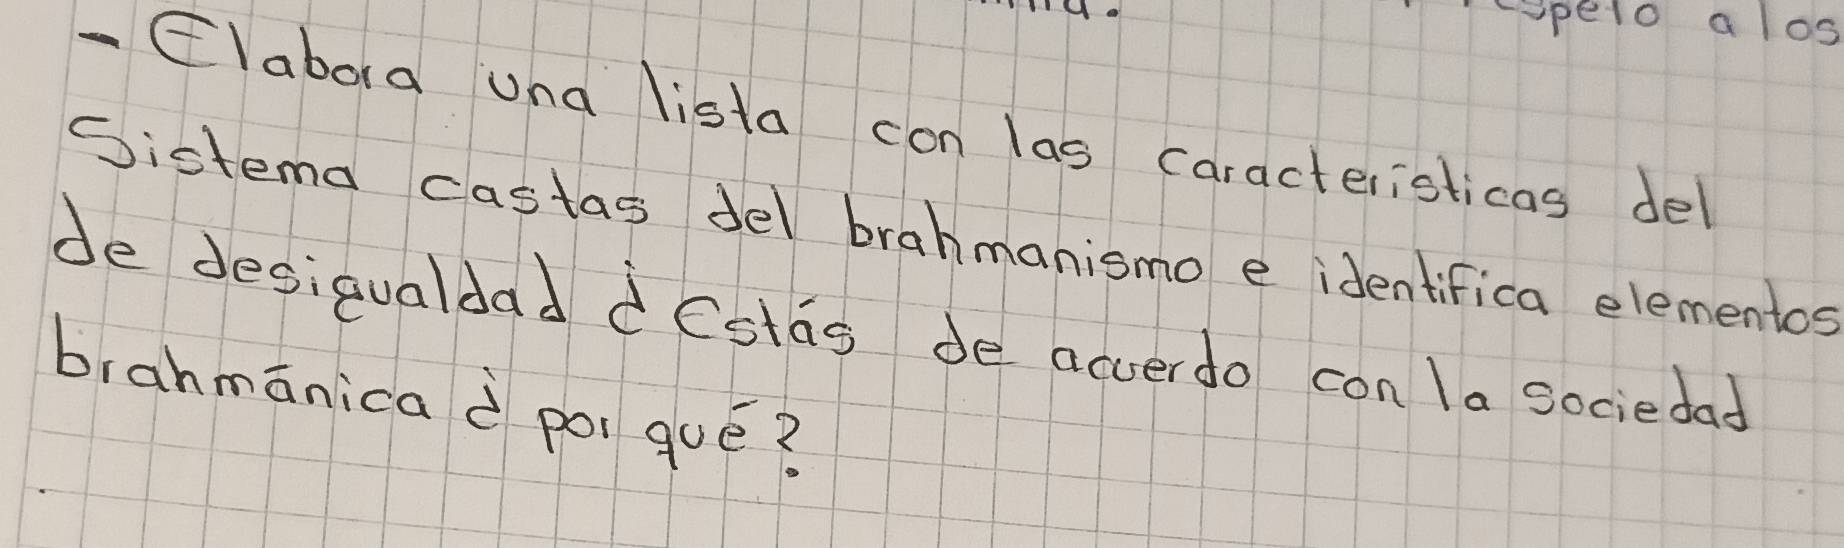 espeto a los
- Elabora una lista con las caracteristicas del
Sistema castas del brahmanismo e identifica elementos
de desigualdad ¿Estás de acuerdo con la sociedad
brahmánica ¿por qué?